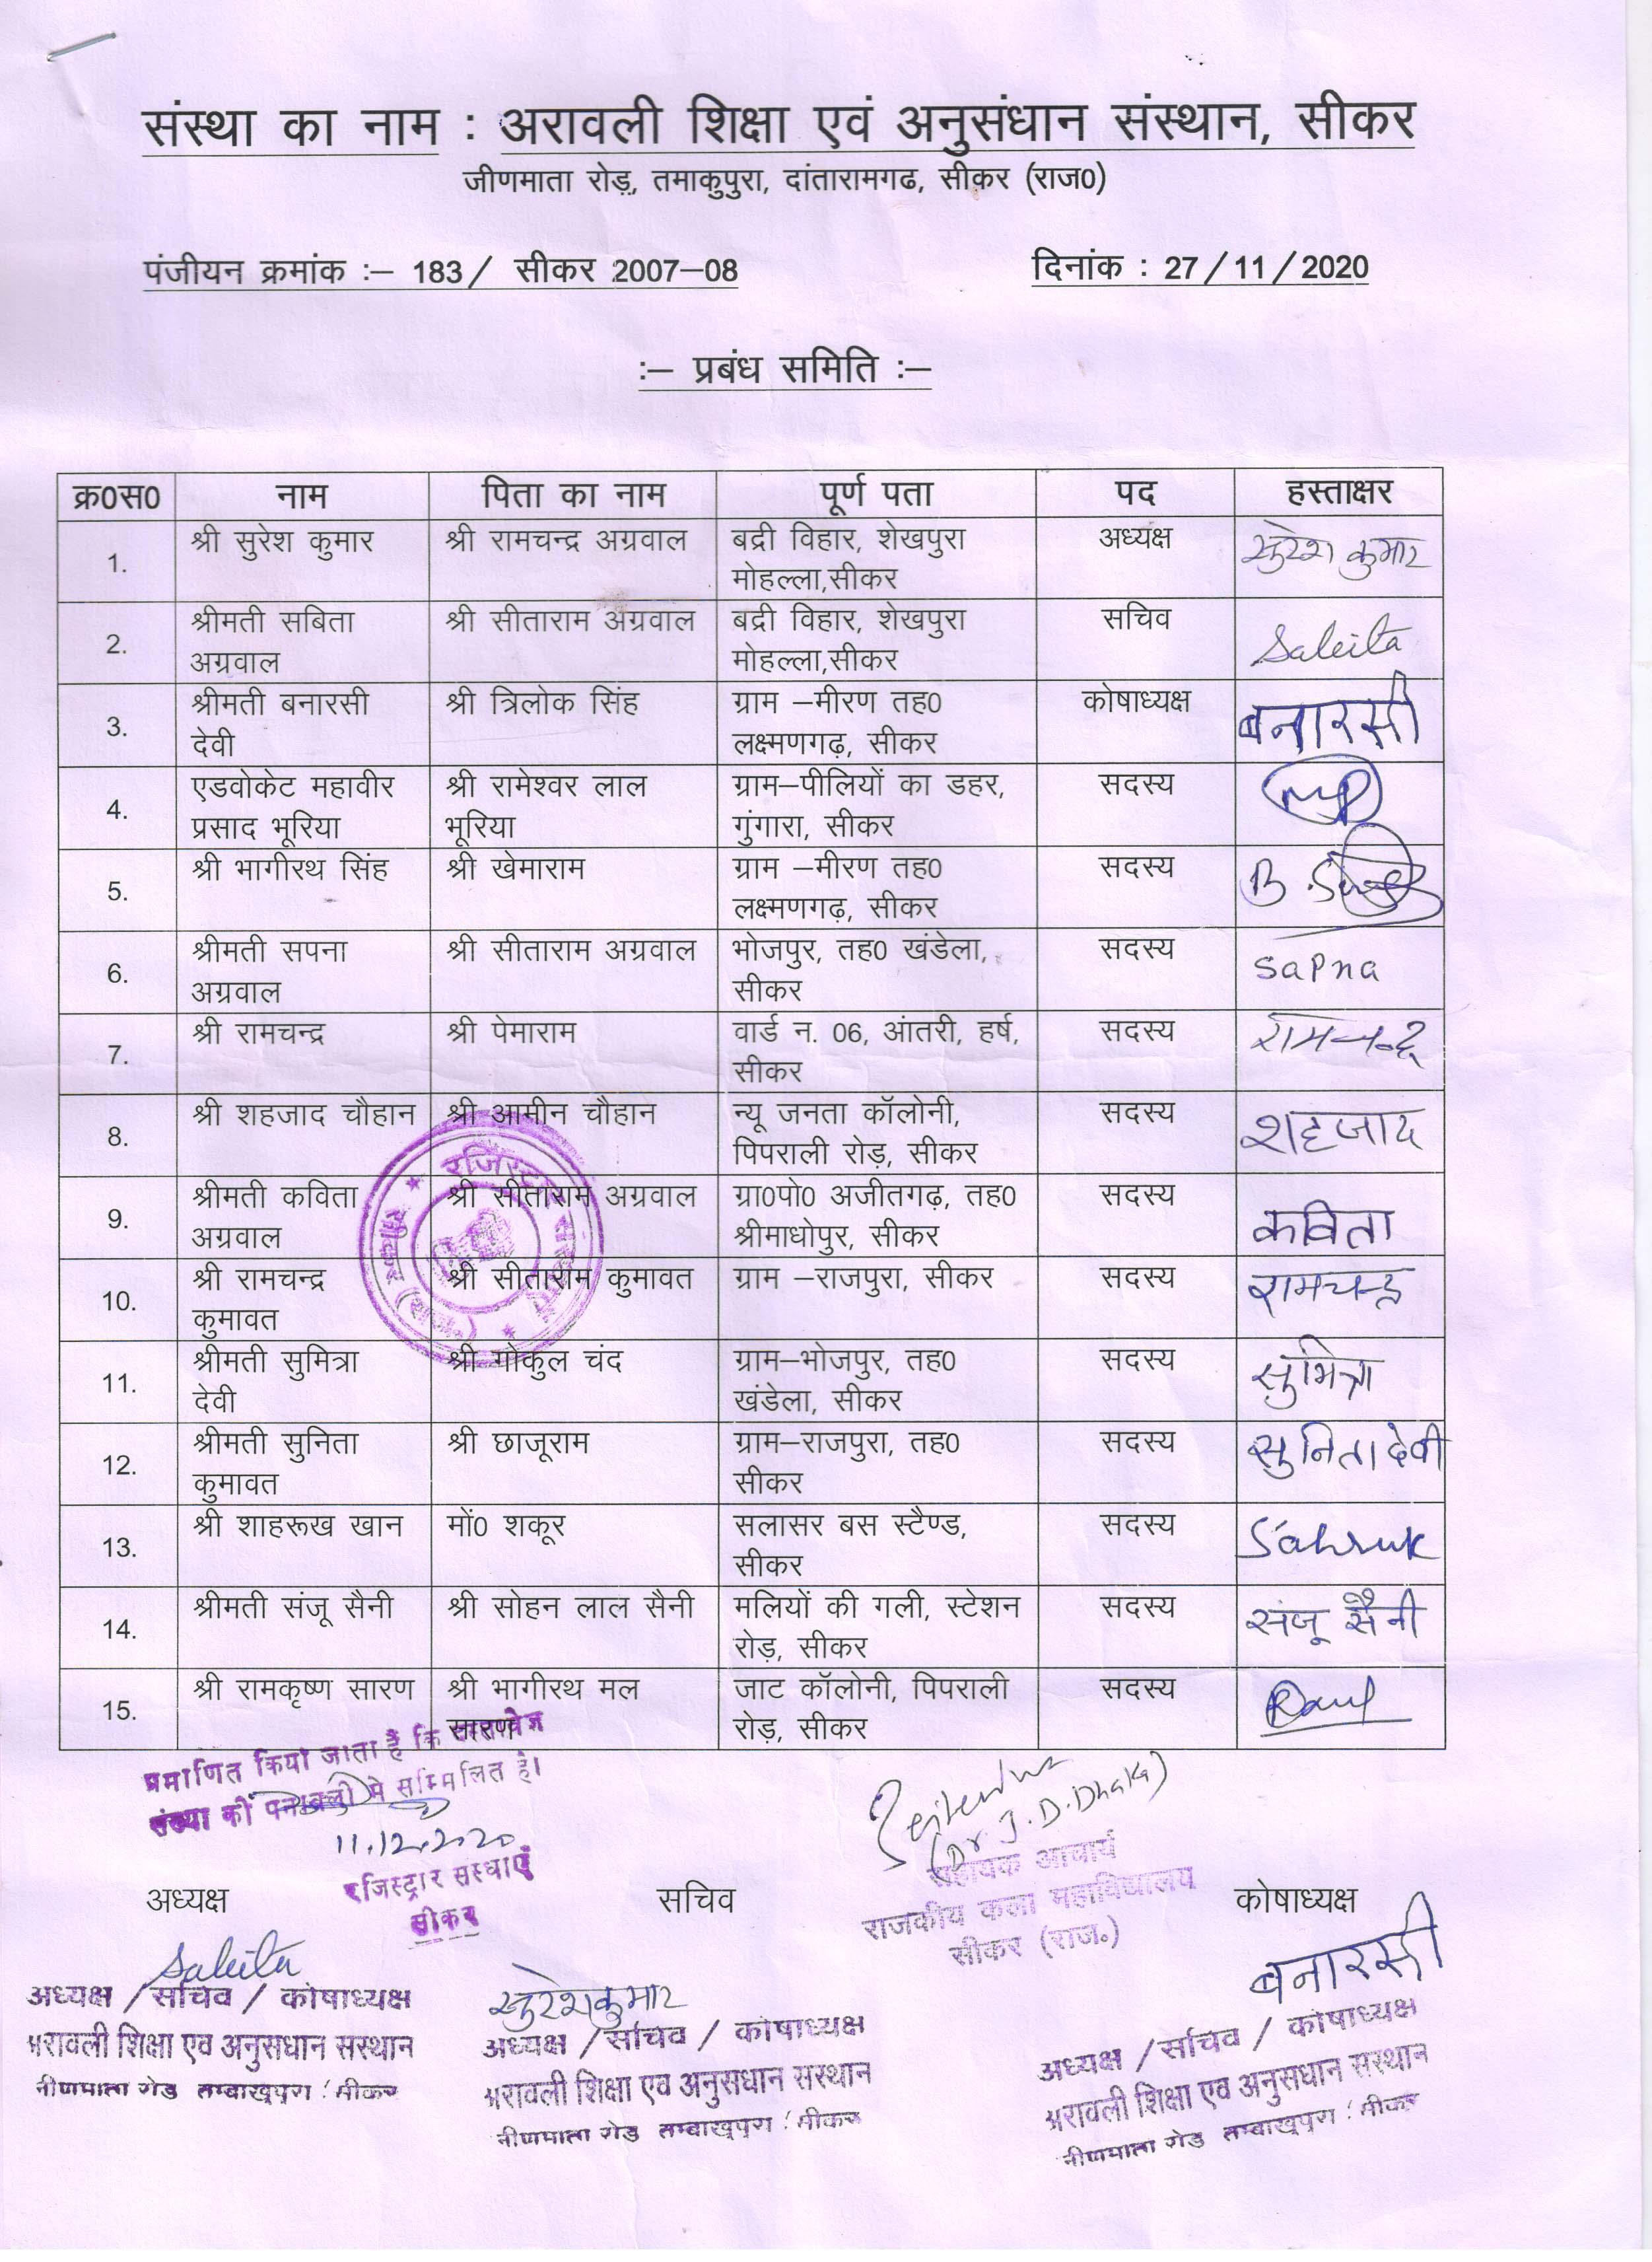 संस्था का नाम : अरावली शिक्षा एवं अनुसंधान संस्थान, सीकर
जीणमाता रोड़, तमाकुपुरा, दांतारामगढ, सीकर (राज0)
पंजीयन क्रमांक :– 183/ सीकर 2007–08 दिनांक : 27/11/2020
:– प्रबंध समिति :–
क्र0स0 नाम पिता का नाम पूर्ण पता पद हस्ताक्षर
1. श्री सुरेश कुमार श्री रामचन्द्र अग्रवाल बद्री विहार, शेखपुरा अध्यक्ष सुरेश कुमार
मोहल्ला,सीकर
2. श्रीमती सबिता श्री सीताराम अग्रवाल बद्री विहार, शेखपुरा सचिव Sabita
अग्रवाल मोहल्ला,सीकर
3. श्रीमती बनारसी श्री त्रिलोक सिंह ग्राम –मीरण तह0 कोषाध्यक्ष बनारसी
देवी लक्ष्मणगढ़, सीकर
4. एडवोकेट महावीर श्री रामेश्वर लाल ग्राम–पीलियों का डहर, सदस्य
प्रसाद भूरिया भूरिया गुंगारा, सीकर
5. श्री भागीरथ सिंह श्री खेमाराम ग्राम –मीरण तह0 सदस्य B. Singh
लक्ष्मणगढ़, सीकर
6. श्रीमती सपना श्री सीताराम अग्रवाल भोजपुर, तह0 खंडेला, सदस्य Sapna
अग्रवाल सीकर
7. श्री रामचन्द्र श्री पेमाराम वार्ड न. 06, आंतरी, हर्ष, सदस्य रामचन्द्र
सीकर
8. श्री शहजाद चौहान श्री आमीन चौहान न्यू जनता कॉलोनी, सदस्य शहजाद
पिपराली रोड़, सीकर
9. श्रीमती कविता श्री सीताराम अग्रवाल ग्रा0पो0 अजीतगढ़, तह0 सदस्य कविता
अग्रवाल श्रीमाधोपुर, सीकर
10. श्री रामचन्द्र श्री सीताराम कुमावत ग्राम –राजपुरा, सीकर सदस्य रामचन्द्र
कुमावत
11. श्रीमती सुमित्रा श्री गोकुल चंद ग्राम–भोजपुर, तह0 सदस्य सुमित्रा
देवी खंडेला, सीकर
12. श्रीमती सुनिता श्री छाजूराम ग्राम–राजपुरा, तह0 सदस्य सुनिता देवी
कुमावत सीकर
13. श्री शाहरूख खान मों0 शकूर सलासर बस स्टैण्ड, सदस्य Sahruk
सीकर
14. श्रीमती संजू सैनी श्री सोहन लाल सैनी मलियों की गली, स्टेशन सदस्य संजू सैनी
रोड़, सीकर
15. श्री रामकृष्ण सारण श्री भागीरथ मल जाट कॉलोनी, पिपराली सदस्य
सारण रोड़, सीकर
प्रमाणित किया जाता है कि दस्तावेज
संस्था की पत्रावली मे सम्मिलित है।
11.12.2020
रजिस्ट्रार संस्थाएं
सीकर
Jeitendra
(Dr J.D.Dhaka)
सहायक आचार्य
राजकीय कला महाविद्यालय
सीकर (राज०)
अध्यक्ष सचिव कोषाध्यक्ष
Sabita सुरेश कुमार बनारसी
अध्यक्ष / सचिव / कोषाध्यक्ष
अरावली शिक्षा एव अनुसधान संस्थान
जीणमाता रोड तम्बाखूपुरा सीकर
अध्यक्ष / सचिव / कोषाध्यक्ष
अरावली शिक्षा एव अनुसधान संस्थान
जीणमाता रोड तम्बाखूपुरा सीकर
अध्यक्ष / सचिव / कोषाध्यक्ष
अरावली शिक्षा एव अनुसधान संस्थान
जीणमाता रोड तम्बाखूपुरा सीकर